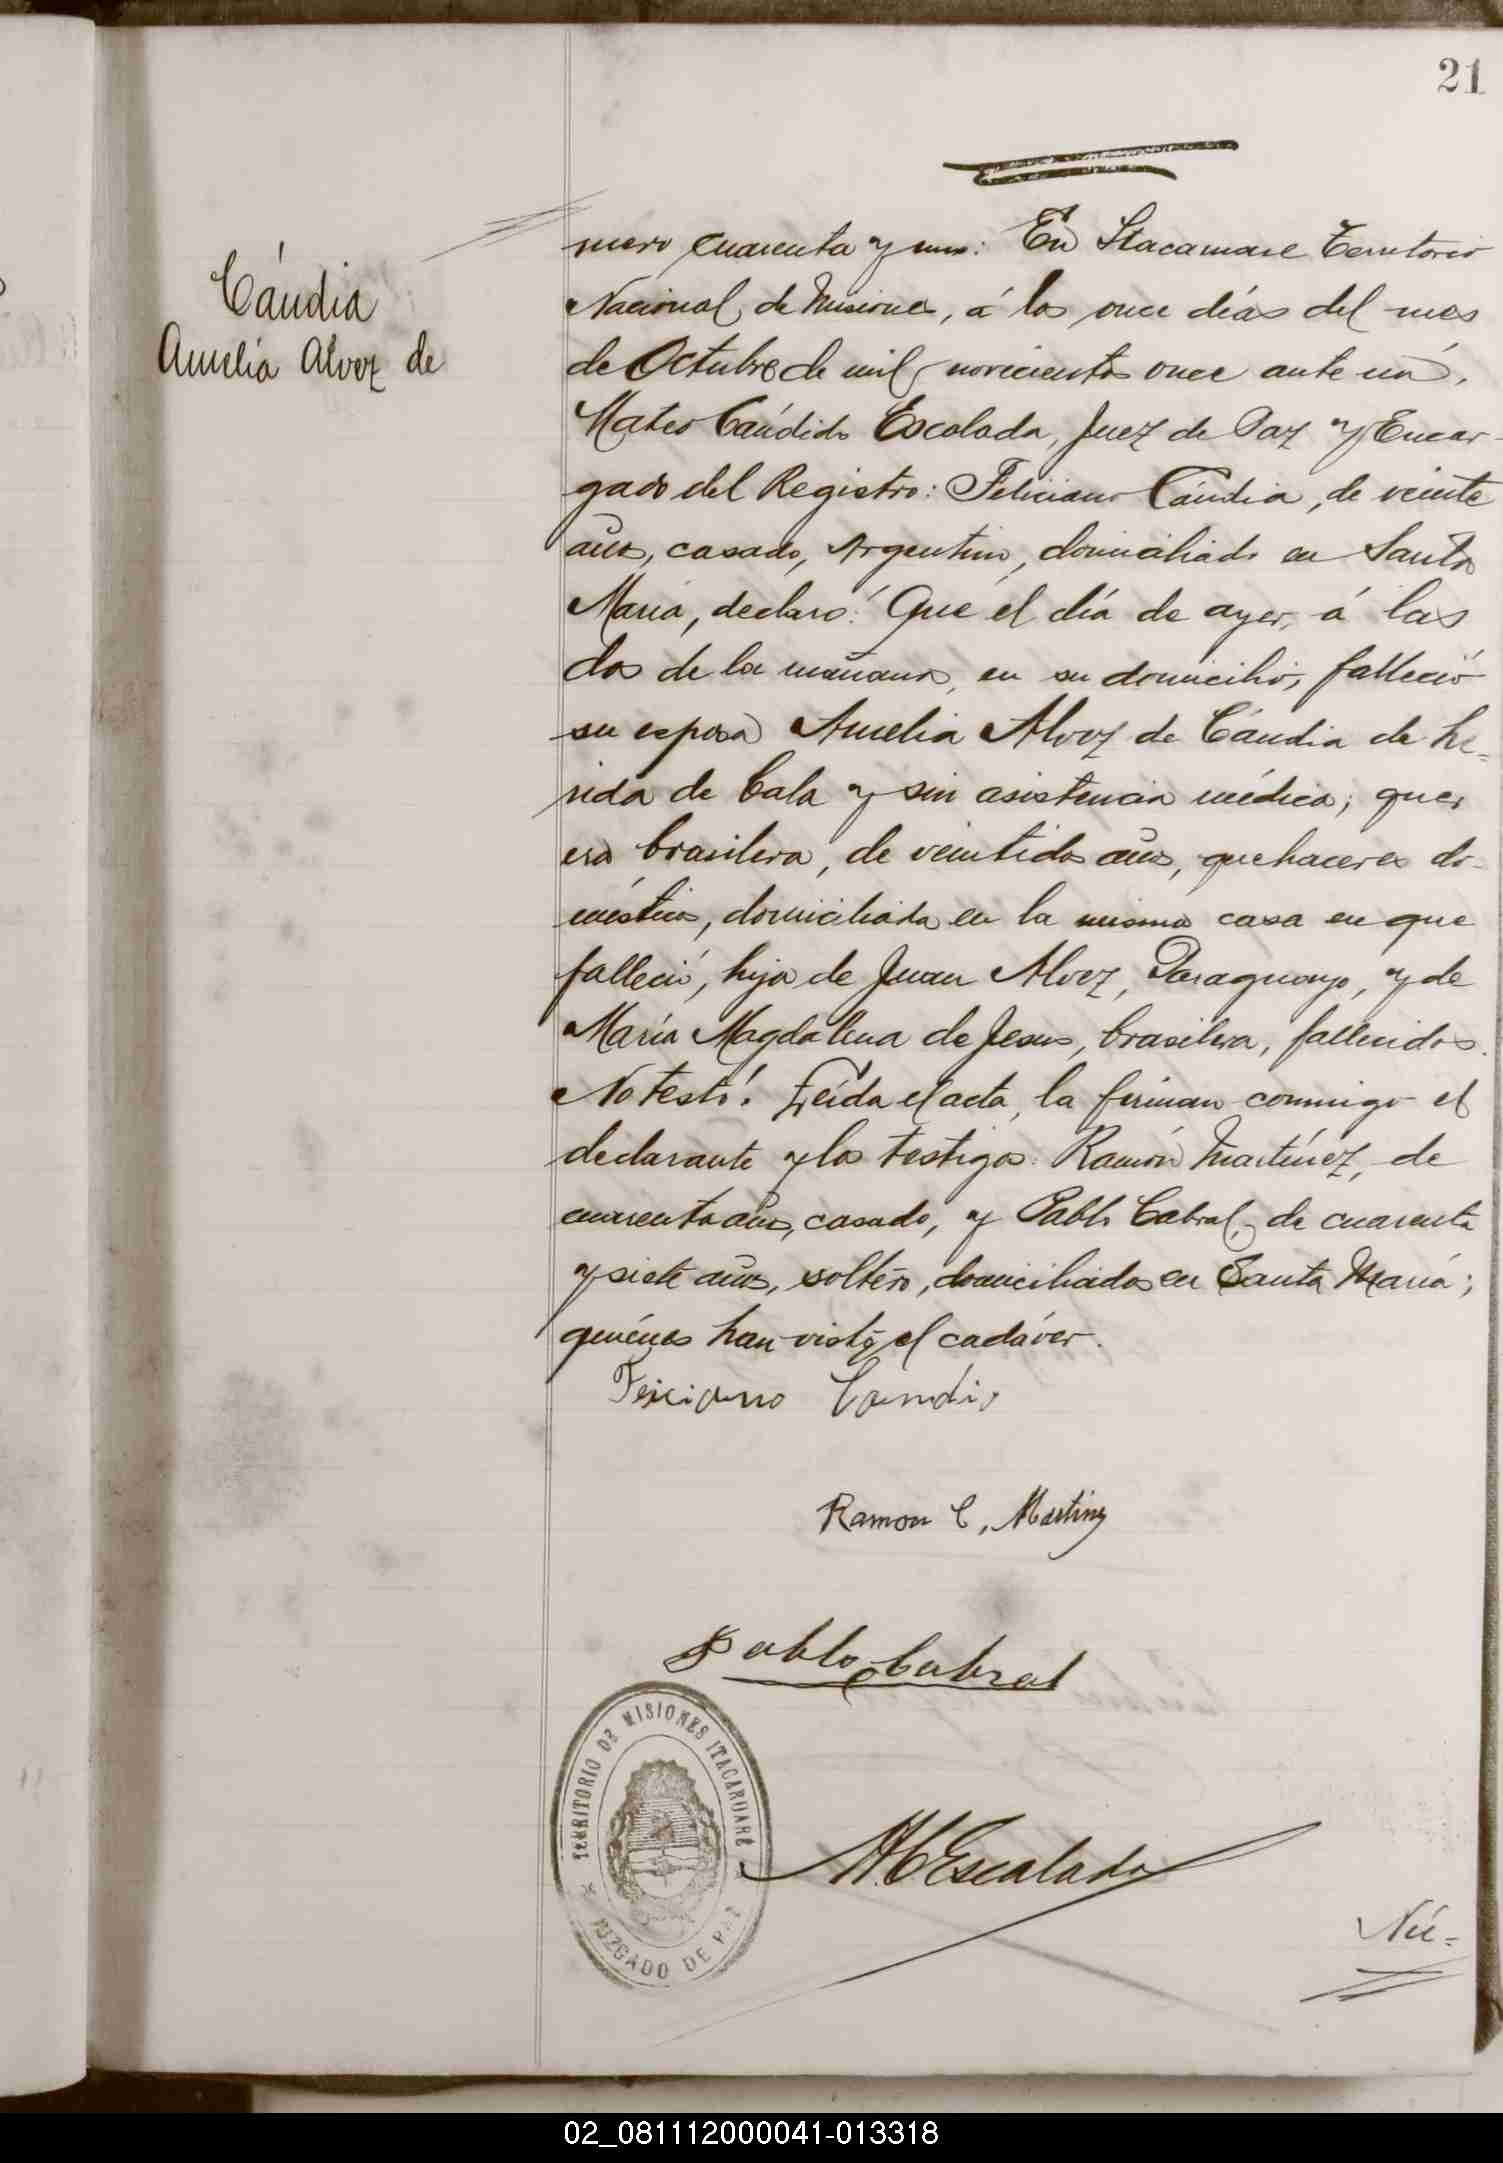 21
Cándia
Amelia Alvez de
mero cuarenta y uno: En Itacaruaré Territorio
Nacional de Misiones, á los once días del mes
de Octubre de mil novecientos once ante mí,
Mateo Cándido Escalada, Juez de Paz y Encar-
gado del Registro: Feliciano Cándia, de veinte
años, casado, Argentino, domiciliado en Santa
María, declaró: Que el día de ayer, á las
dos de la mañana, en su domicilio, falleció
su esposa Amelia Alvez de Cándia de he-
rida de bala y sin asistencia médica; que
era brasilera, de veintidos años, quehaceres do-
mésticos, domiciliada en la misma casa en que
falleció, hija de Juan Alvez, Paraguayo, y de
María Magdalena de Jesus, brasilera, fallecidos.
No testó. Leída el acta, la firman conmigo el
declarante y los testigos: Ramón Martínez, de
cuarenta años, casado, y Pablo Cabral, de cuarenta
y siete años, soltero, domiciliados en Santa María;
quiénes han visto el cadáver.
Feliciano Candia
Ramon C. Martinez
Pablo Cabral
TERRITORIO DE MISIONES ITACARUARE
JUZGADO DE PAZ
M.C. Escalada
Nú-
02_081112000041-013318